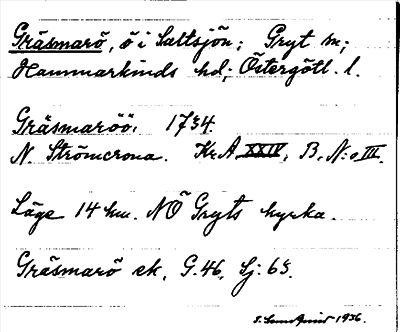 Gräsmarö, ö i Saltsjön; Gryt sn;
Hammarkinds hd; Östergötl. l.
Gräsmaröö. 1734.
N. Strömcrona. Kr.A XXIV, B, N:o III.
Läge 14 km. NÖ Gryts kyrka.
Gräsmarö ek, G.46, Sj: 65.
1936.